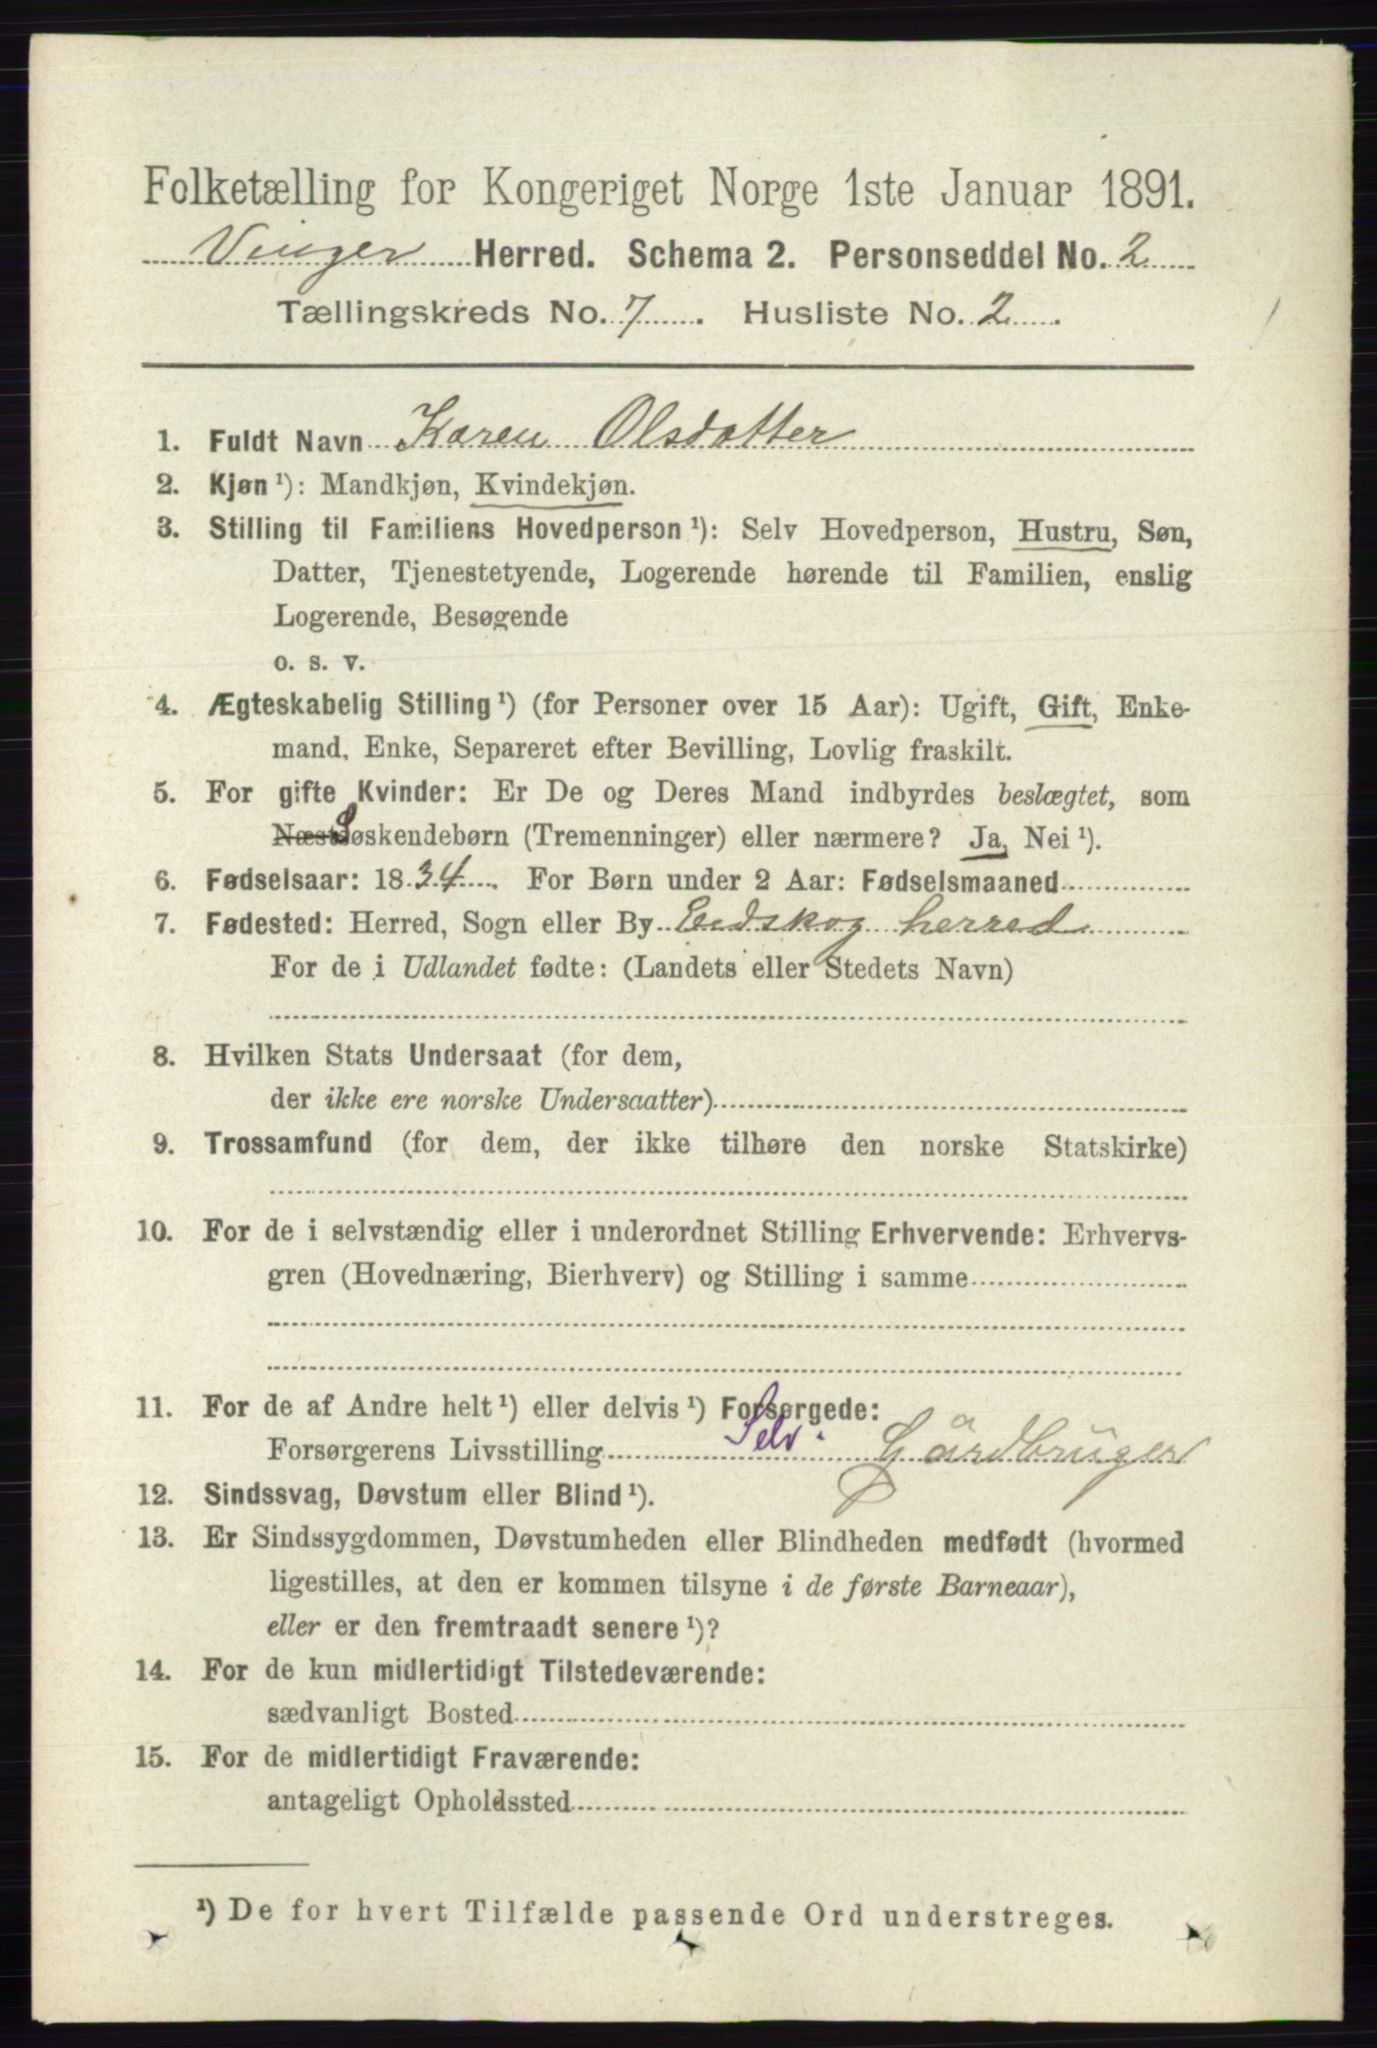 Folketælling for Kongeriget Norge 1ste Januar 1891.
Vinger Herred. Schema 2. Personseddel No. 2
Tællingskreds No. 7 . Husliste No. 2 .
1. Fuldt Navn Karen Olsdatter
2. Kjøn ¹): Mandkjøn, Kvindekjøn.
3. Stilling til Familiens Hovedperson ¹): Selv Hovedperson, Hustru, Søn,
Datter, Tjenestetyende, Logerende hørende til Familien, enslig
Logerende, Besøgende
o. s. v.
4. Ægteskabelig Stilling ¹) (for Personer over 15 Aar): Ugift, Gift, Enke-
mand, Enke, Separeret efter Bevilling, Lovlig fraskilt.
5. For gifte Kvinder: Er De og Deres Mand indbyrdes beslægtet, som
Næstsøskendebørn (Tremenninger) eller nærmere? Ja, Nei ¹).
6. Fødselsaar: 1834 . For Børn under 2 Aar: Fødselsmaaned
7. Fødested: Herred, Sogn eller By Eidskog herred
For de i Udlandet fødte: (Landets eller Stedets Navn)
8. Hvilken Stats Undersaat (for dem,
der ikke ere norske Undersaatter)
9. Trossamfund (for dem, der ikke tilhøre den norske Statskirke)
10. For de i selvstændig eller i underordnet Stilling Erhvervende: Erhvervs-
gren (Hovednæring, Bierhverv) og Stilling i samme
11. For de af Andre helt ¹) eller delvis ¹) Forsørgede:
Forsørgerens Livsstilling Selv. Gårdbruger
12. Sindssvag, Døvstum eller Blind ¹).
13. Er Sindssygdommen, Døvstumheden eller Blindheden medfødt (hvormed
ligestilles, at den er kommen tilsyne i de første Barneaar),
eller er den fremtraadt senere ¹)?
14. For de kun midlertidigt Tilstedeværende:
sædvanligt Bosted
15. For de midlertidigt Fraværende:
antageligt Opholdssted
¹) De for hvert Tilfælde passende Ord understreges.